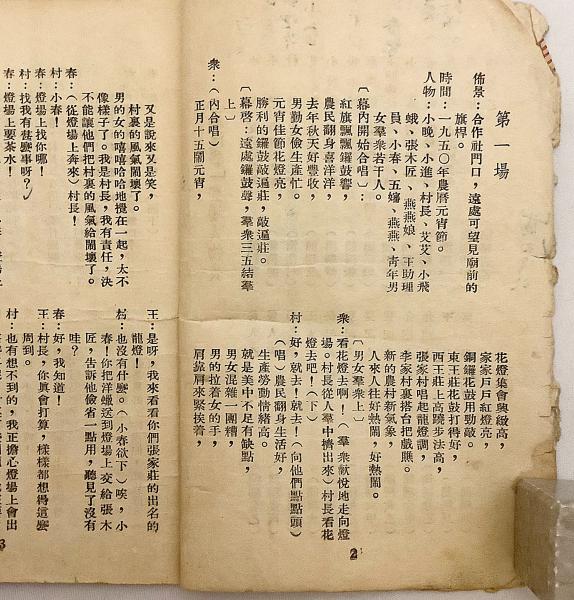 第一場
佈景：合作社門口，遠處可望見廟前的
旗桿。
時間：一九五〇年農曆元宵節。
人物：小晚、小進、村長、艾艾、小飛
蛾、張木匠、燕燕娘、王助理
員、小春、五嬸、燕燕、青年男
女羣衆若干人。
〔幕內開始合唱〕：
紅旗飄飄鑼鼓響，
農民翻身喜洋洋，
去年秋天好豐收，
男勤女儉生產忙。
元宵佳節花燈亮，
勝利的鑼鼓敲遍莊，敲遍莊。
〔幕啓：遠處鑼鼓聲，羣衆三五結羣
上〕
衆：（內合唱）
正月十五鬧元宵，
花燈集會興緻高，
家家戶戶紅燈亮，
銅鑼花鼓用勁敲。
東王莊花鼓打得好，
西王莊上高蹺步法高，
張家村唱起龍燈調，
李家村裏搭台把戲瞧。
新的農村新氣象，
人來人往好熱鬧，好熱鬧。
〔男女羣衆上〕
衆：看花燈去啊！（羣衆歡悅地走向燈
場。村長從人羣中擠出來）村長看花
燈去吧！（下）
村：好，就去！就去！（向他們點點頭）
（唱）農民翻身生活好，
生產勞動情緒高。
就是美中不足有缺點，
男女混雜一團糟，
男的拉着女的手，
肩靠肩來緊挨着，
2
又是說來又是笑，
村裏的風氣鬧壞了。
男的女的嘻嘻哈哈地攪在一起，太不
像樣子了。我是村長，我有責任，決
不能讓他們把村裏的風氣給鬧壞了。
春：（從燈場上奔來）村長！
村：小春！
春：燈場上找你哪！
村：找我有甚麼事呀？
春：燈場上要茶水！
王：是呀，我來看看你們張家莊的出名的
龍燈！
村：也沒有什麼。（小春欲下）唉，小
春！你把洋蠟送到燈場上交給張木
匠，告訴他儉省一點用，聽見了沒有
哇？
春：好，我知道！
王：村長，你真會打算，樣樣都想得這麼
周到。
村：也有想不到的，我正擔心燈場上會出
3